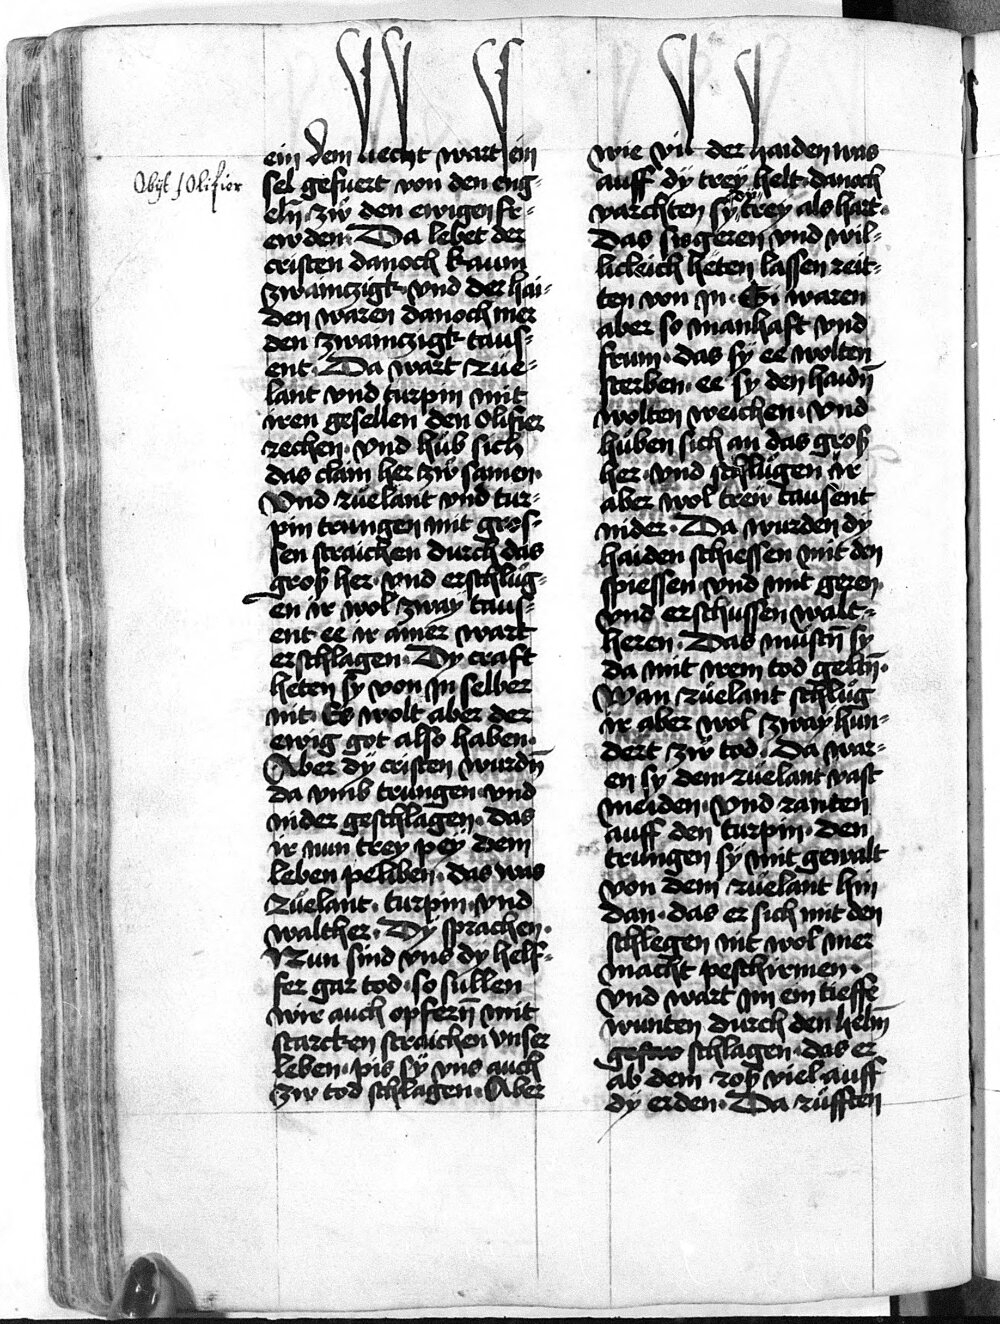 Obyt Olifier
ein dem liecht wart ein
sel gefuert von den eng-
eln zw den ewigen fr-
ewden. Da lebet der
cristen danoch kaum
zwainczigk. vnd der hai-
den waren danoch mer
den zwainczigk taus-
ent. Da wart rüe-
lant vnd turpin mit
iren gesellen den Olifier
rechen. vnd hüb sich
das clain her zw samen.
Vnd rüelant vnd tur-
pin trungen mit gros-
sen straichen durch das
groß her. vnd erschlüg-
en ir wol zway taus-
ent ee ir ainer wart
erschlagen. Dy craft
heten sy von in selber
nit. Es wolt aber der
ewig got also haben.
Aber dy cristen wurdn̄
da vmb trungen. vnd
nider geschlagen. Das
ir nun trey pey dem
leben peliben. das was
rüelant. turpin. vnd
walther. Dy sprachen.
Nun sind vns dy helf-
fer gar tod. so sullen
wir auch opfern̄ mit
starcken straichen vnser
leben. pis sy vns auch
zw tod schlagen. Aber
wie vil der haiden was
auff dy trey helt. danoch
varchten sy dy trey als hart.
Das sy sy geren vnd wil-
licleich heten lassen reit-
ten von in. Si waren
aber so manhaft vnd
frum. das sy ee wolten
sterben. ee sy den haidn̄
wolten weichen. Vnd
huben sich an das groß
her. vnd schlügen ir
aber wol trew tausent
nider. Da wurden dy
haiden schiessen mit den
spiessen vnd mit geren.
vnd erschussen walt-
heren. Das mustn̄ sy
da mit irem tod geltn̄.
Wan rüelant schlüg
ir aber wol zway hun-
dert zw tod. Da war-
en sy dem rüelant vast
meiden. vnd ranten
auff den turpin. Den
trungen sy mit gewalt
von dem rüelant hin
dan. das er sich mit den
schlegen nit wol mer
macht peschirmen.
vnd wart im ein tieffe
wunten durch den helm̄
schlagen. das er
ab dem roß viel auff
dy erden. Da rüfften